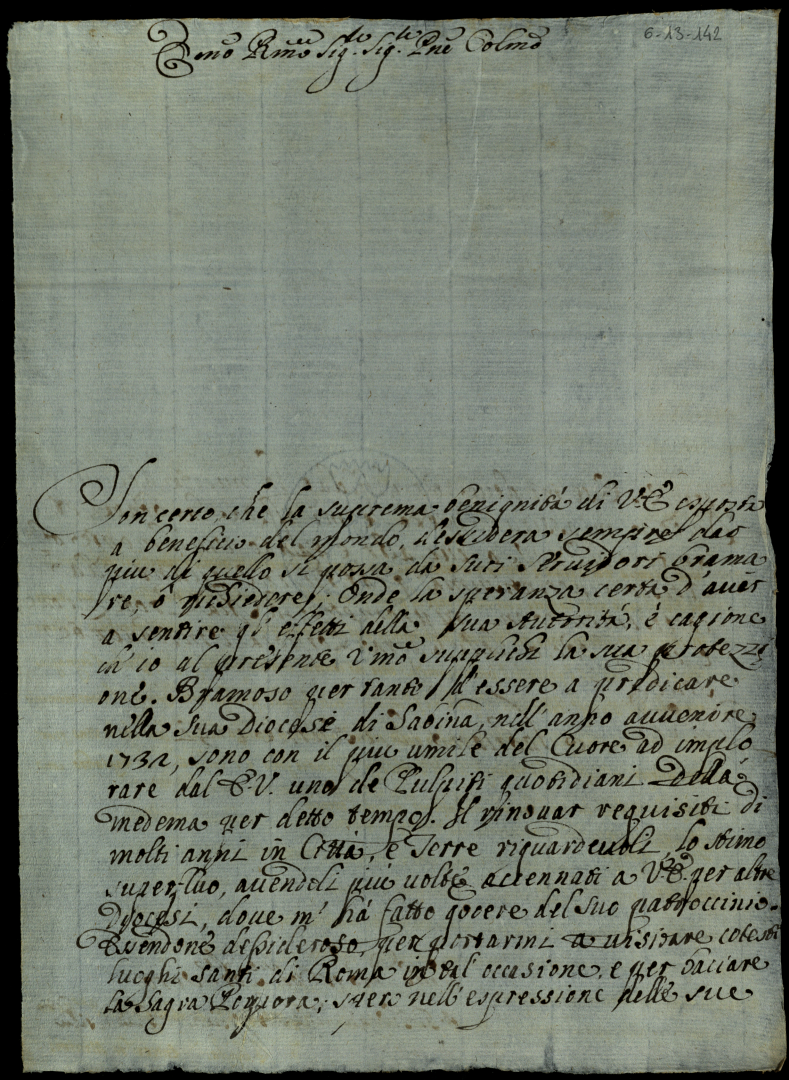 6-13-142
Emo Rmo Sig.re Sig.re Pne Colmo
Son certo che la suprema benignità di V.E esposta
a beneficio del mondo, desidera sempre dar
piu di quello si possa da suoi servidori brama
re, ò richiedere; Onde la speranza certa d'aver
a sentire gl'effetti della sua Autorità, è cagione
ch'io al presente supplichi la sua protezzi
one. Bramoso per tanto d'essere a predicare
nella sua Diocese di Sabina, nell'anno avvenire
1732, sono con il piu umile del Cuore ad implo
rare dal E.V. uno de Pulpiti quotidiani della
medema per detto tempo. Il rinovar requisiti di
molti anni in Città, e Terre riguardevoli, lo stimo
superfluo, avendoli piu volte accennati a V.E per altre
Diocesi, dove m'hà fatto godere del suo patroccinio.
Essendone desideroso, per portarmi a visitare cotesti
luoghi santi di Roma in tal occasione, e per baciare
la Sagra Porpora; spero nell'espressione delle sue